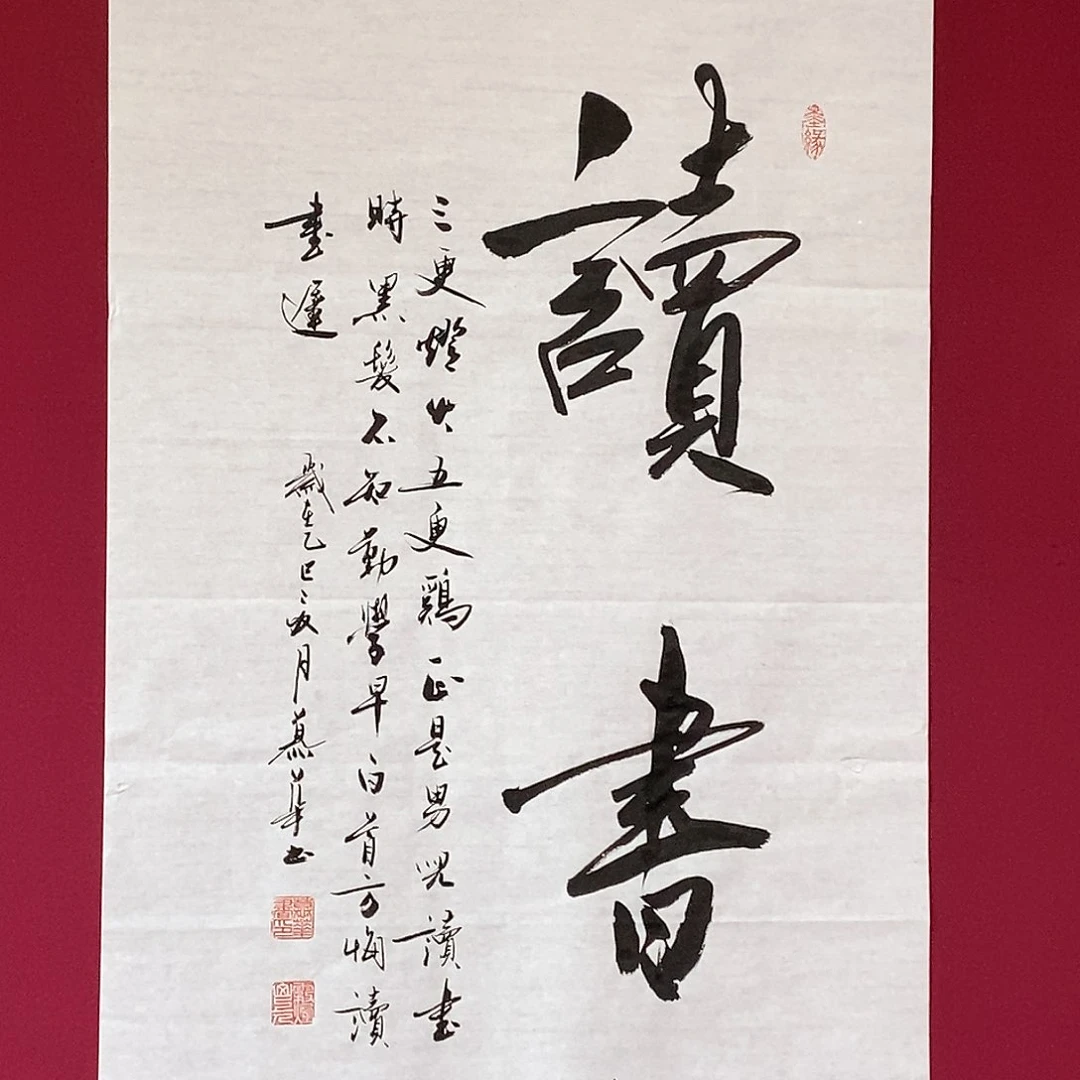 讀書
墨緣
三更燈火五更鷄正是男兒讀書
時黑髮不知勤學早白首方悔讀
書遲
歲在乙巳三友月慕華书